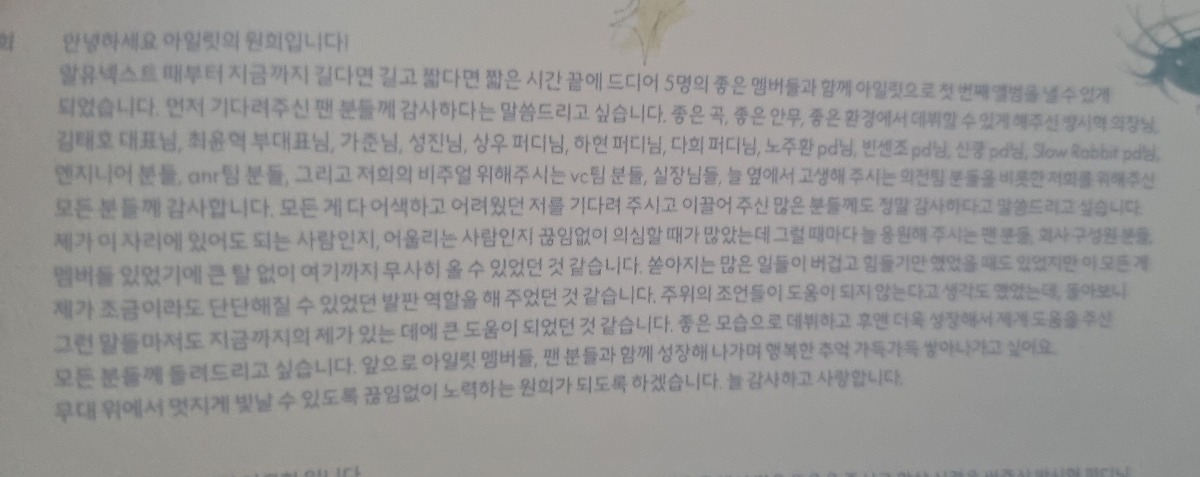 희
안녕하세요 아일릿의 원희입니다!
알유넥스트 때부터 지금까지 길다면 길고 짧다면 짧은 시간 끝에 드디어 5명의 좋은 멤버들과 함께 아일릿으로 첫 번째 앨범을 낼 수 있게
되었습니다. 먼저 기다려주신 팬 분들께 감사하다는 말씀드리고 싶습니다. 좋은 곡, 좋은 안무, 좋은 환경에서 데뷔할 수 있게 해주신 방시혁 의장님,
김태호 대표님, 최윤혁 부대표님, 가준님, 성진님, 상우 퍼디님, 하현 퍼디님, 다희 퍼디님, 노주환 pd님, 빈센조 pd님, 신쿵 pd님, Slow Rabbit pd님,
엔지니어 분들, anr팀 분들, 그리고 저희의 비주얼 위해주시는 vc팀 분들, 실장님들, 늘 옆에서 고생해 주시는 의전팀 분들을 비롯한 저희를 위해주신
모든 분들께 감사합니다. 모든 게 다 어색하고 어려웠던 저를 기다려 주시고 이끌어 주신 많은 분들께도 정말 감사하다고 말씀드리고 싶습니다.
제가 이 자리에 있어도 되는 사람인지, 어울리는 사람인지 끊임없이 의심할 때가 많았는데 그럴 때마다 늘 응원해 주시는 팬 분들, 회사 구성원 분들,
멤버들 있었기에 큰 탈 없이 여기까지 무사히 올 수 있었던 것 같습니다. 쏟아지는 많은 일들이 버겁고 힘들기만 했었을 때도 있었지만 이 모든 게
제가 조금이라도 단단해질 수 있었던 발판 역할을 해 주었던 것 같습니다. 주위의 조언들이 도움이 되지 않는다고 생각도 했었는데, 돌아보니
그런 말들마저도 지금까지의 제가 있는 데에 큰 도움이 되었던 것 같습니다. 좋은 모습으로 데뷔하고 후엔 더욱 성장해서 제게 도움을 주신
모든 분들께 돌려드리고 싶습니다. 앞으로 아일릿 멤버들, 팬 분들과 함께 성장해 나가며 행복한 추억 가득가득 쌓아나가고 싶어요.
무대 위에서 멋지게 빛날 수 있도록 끊임없이 노력하는 원희가 되도록 하겠습니다. 늘 감사하고 사랑합니다.